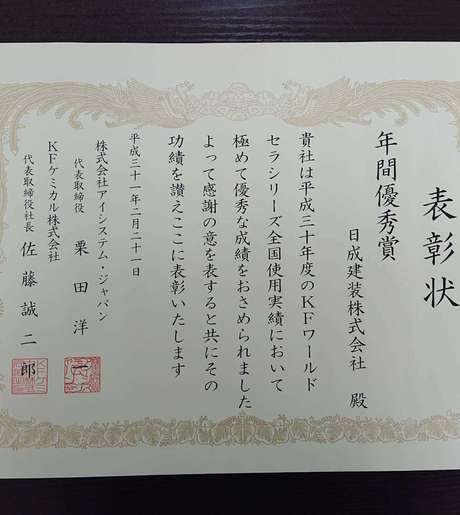 表彰状
年間優秀賞
日成建装株式会社 殿
貴社は平成三十年度のKFワールド
セラシリーズ全国使用実績において
極めて優秀な成績をおさめられました
よって感謝の意を表すると共にその
功績を讃えここに表彰いたします
平成三十一年二月二十一日
株式会社アイシステム・ジャパン
代表取締役 栗田洋一
KFケミカル株式会社
代表取締役社長 佐藤誠二郎